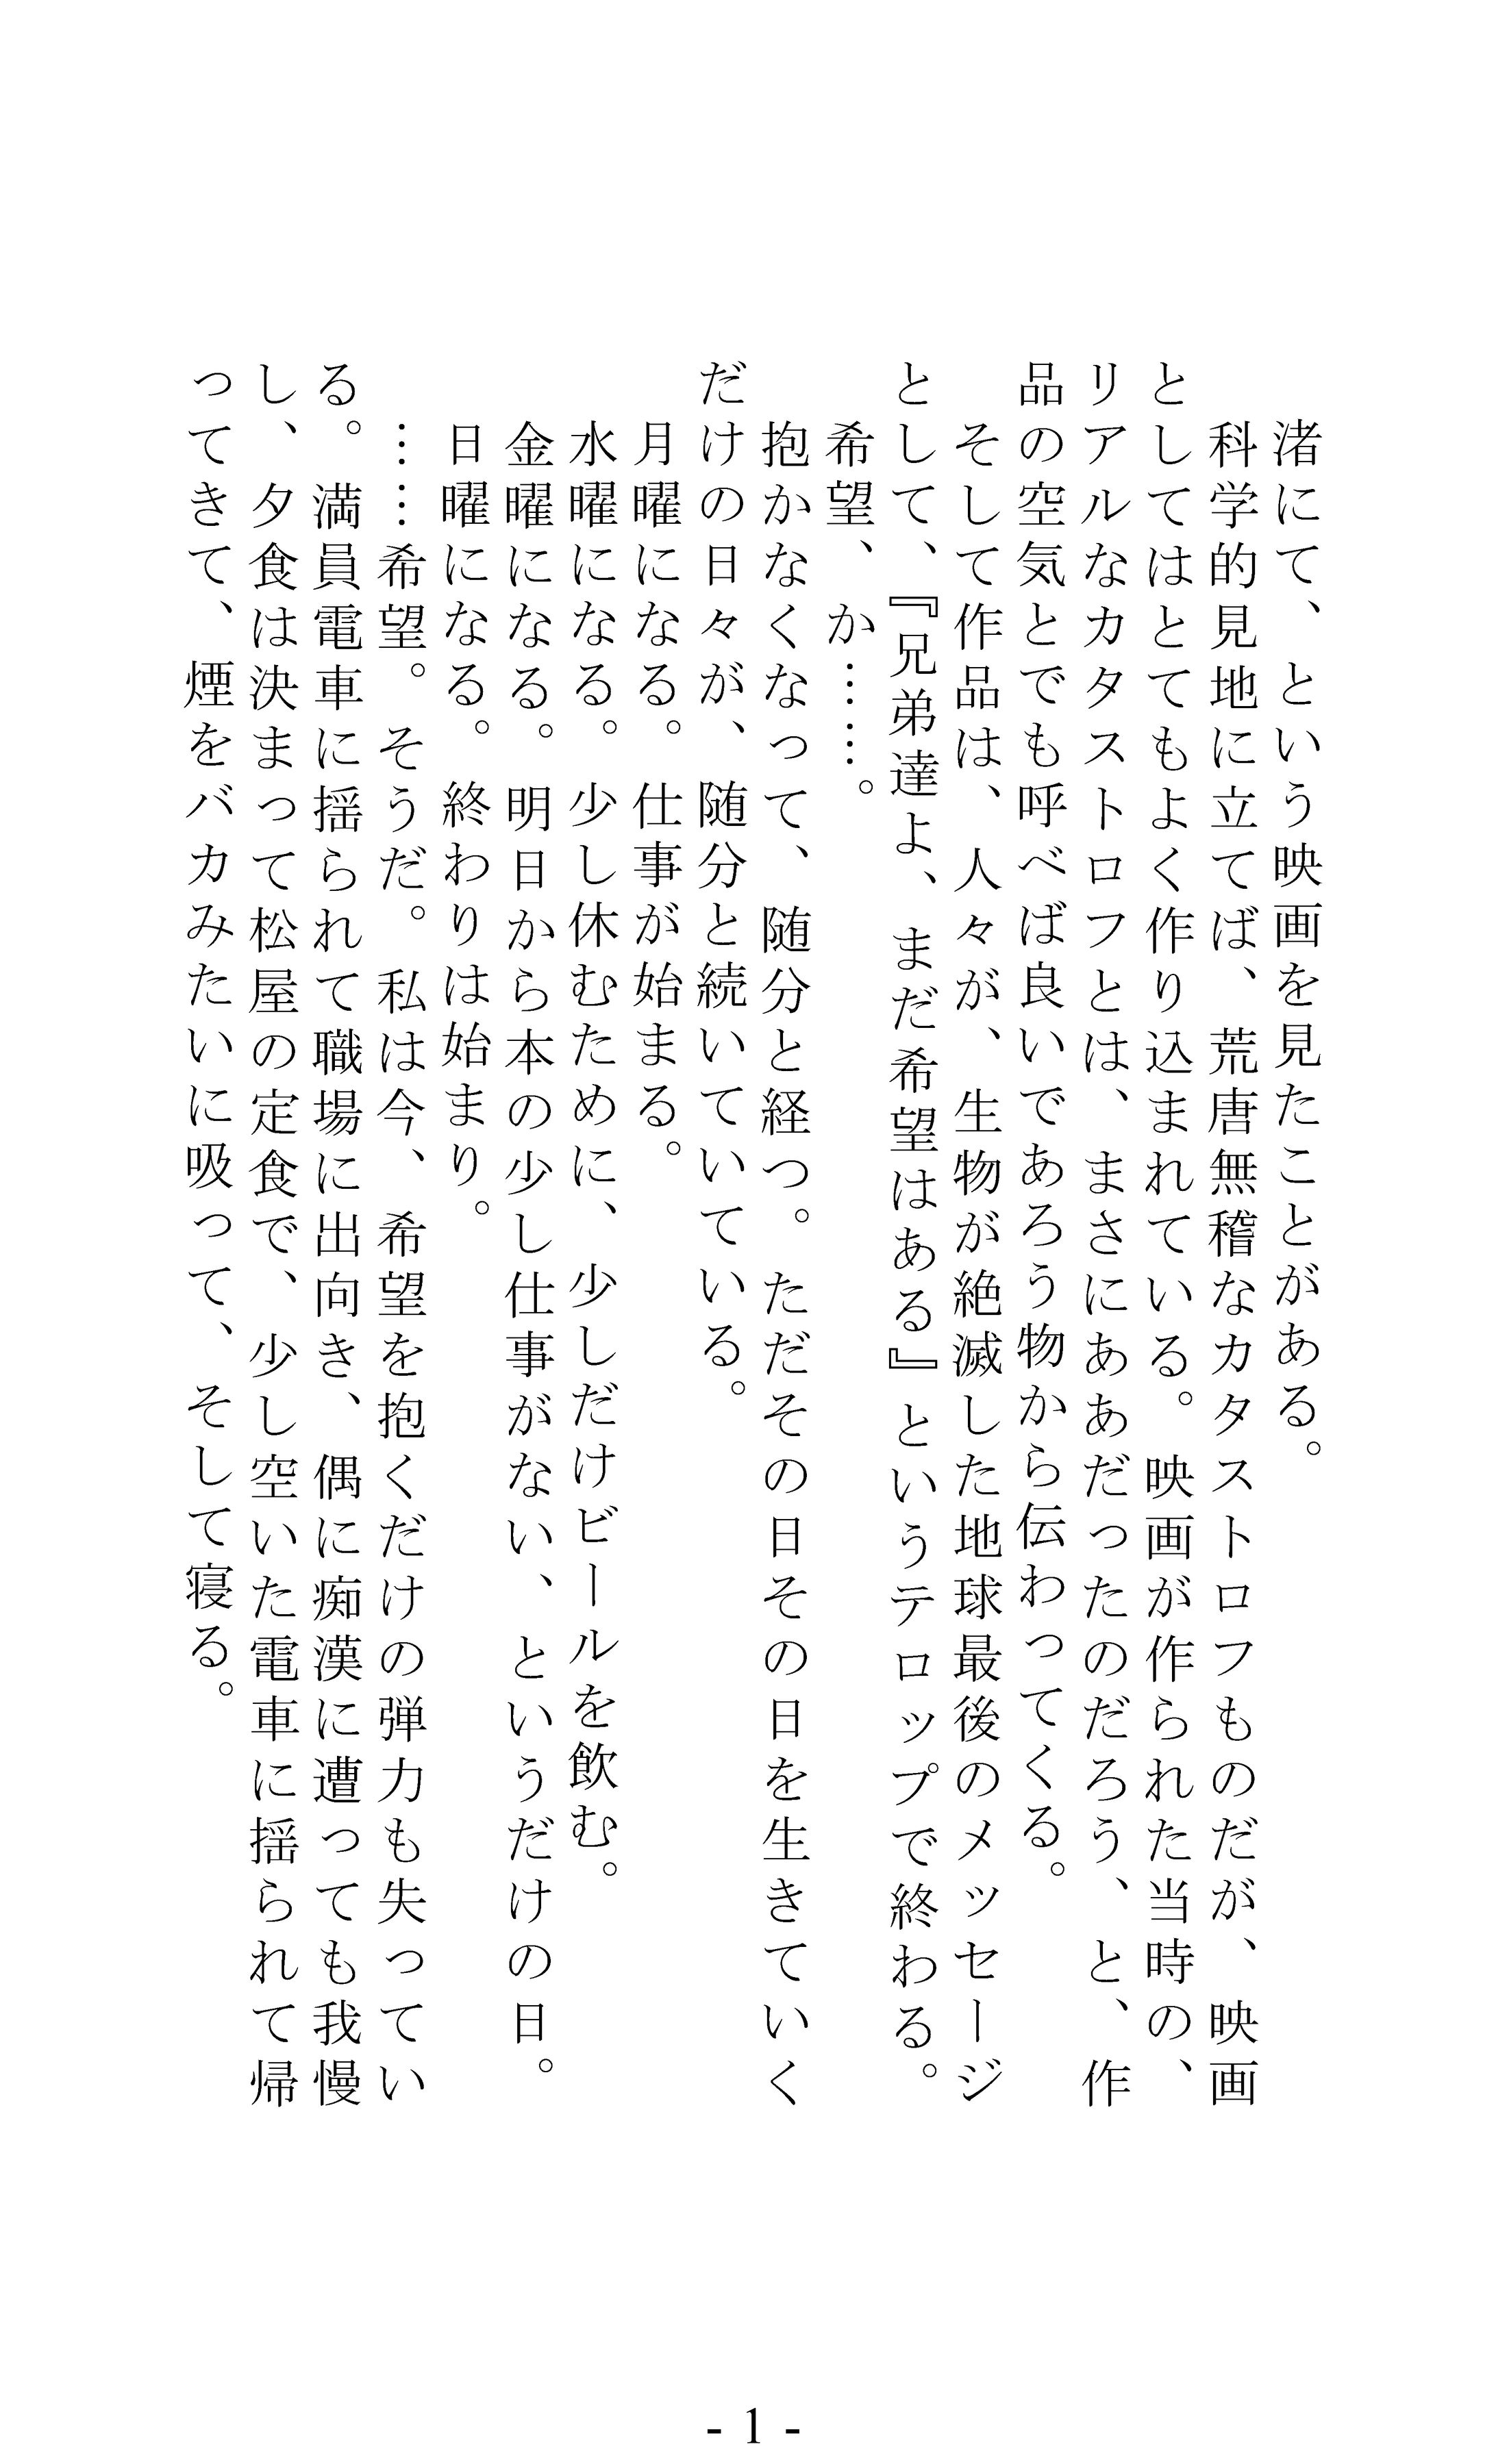 渚にて、という映画を見たことがある。
　科学的見地に立てば、荒唐無稽なカタストロフものだが、映画
としてはとてもよく作り込まれている。映画が作られた当時の、
リアルなカタストロフとは、まさにああだったのだろう、と、作
品の空気とでも呼べば良いであろう物から伝わってくる。
　そして作品は、人々が、生物が絶滅した地球最後のメッセージ
として、『兄弟達よ、まだ希望はある』というテロップで終わる。
　希望、か……。
　抱かなくなって、随分と経つ。ただその日その日を生きていく
だけの日々が、随分と続いている。
　月曜になる。仕事が始まる。
　水曜になる。少し休むために、少しだけビールを飲む。
　金曜になる。明日から本の少し仕事がない、というだけの日。
　日曜になる。終わりは始まり。
　……希望。そうだ。私は今、希望を抱くだけの弾力も失ってい
る。満員電車に揺られて職場に出向き、偶に痴漢に遭っても我慢
し、夕食は決まって松屋の定食で、少し空いた電車に揺られて帰
ってきて、煙をバカみたいに吸って、そして寝る。
- 1 -